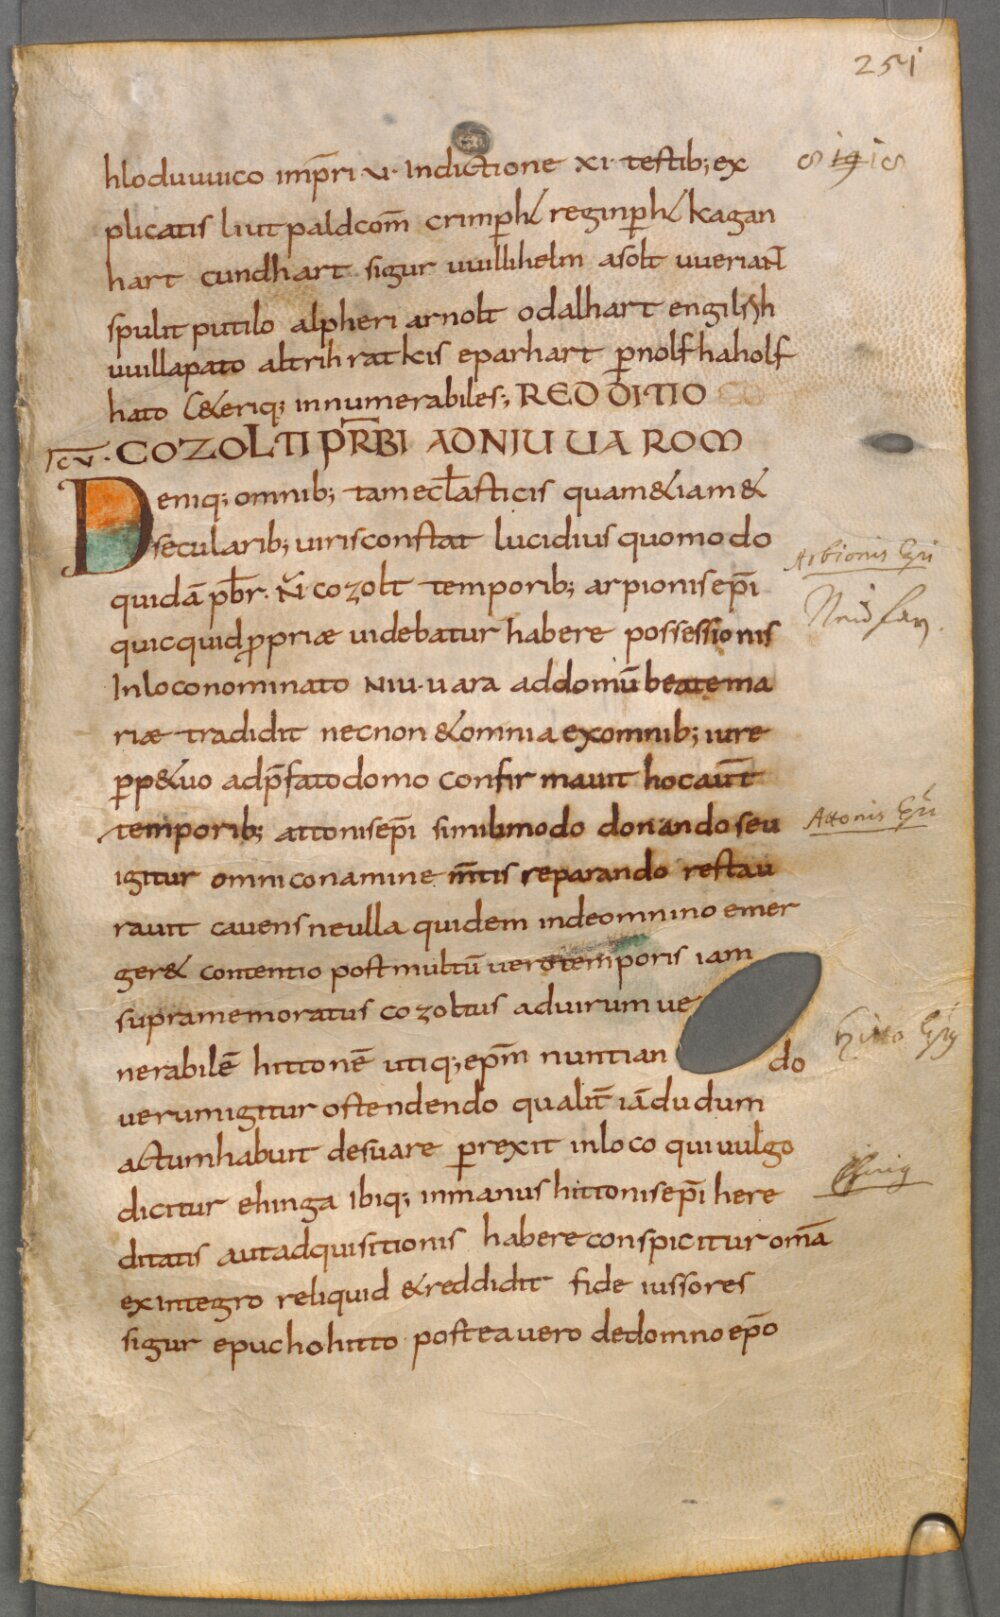 251
hloduuuico imp̄ri vi· Indictione xi· testib; ex
plicatis liutpald com̄ crimp̲h̲ reginp̲h̲ kagan
hart cundhart sigur uuillihelm asolt uueriant
spulit putilo alpheri arnolt odalhart engilsch
uuillapato altrih ratkis eparhart p̲nolf haholf
hato &eriq; innumerabiles; REDDITIO
COZOLTI P̄RBI AD NIUUAROM
Deniq; omnib; tam eccl̄asticis quam &iam &
secularib; uiris constat lucidius quomodo
quidā p̄br· N̄ cozolt temporib; arpionis ep̄i
quicquid p̲priæ uidebatur habere possessionis
In loco nominato NIU·uara ad domū beate ma
riæ tradidit necnon & omnia ex omnib; iure
p̲p&uo ad p̄fato domo confirmauit hoc aut̄
temporib; attonis ep̄i simili modo donando seu
igitur omni conamine m̄tis reparando restau
rauit cauens ne ulla quidem inde omnino emer
ger& contentio post multū uero temporis iam
supra memoratus cozoltus ad uirum ue
nerabilē hittonē utiq; ep̄m nuntian do
uerum igitur ostendendo qualit̄ iā dudum
actum habuit de suare p̲rexit in loco qui uulgo
dicitur ehinga ibiq; in manus hittonis ep̄i here
ditatis aut adquisitionis habere conspicitur om̄a
ex integro reliquid & reddidit fide iussores
sigur epucho hitto postea uero de domno ep̄o
Arbionis Ep̄i
Attonis Ep̄i
Hitto Ep̄s